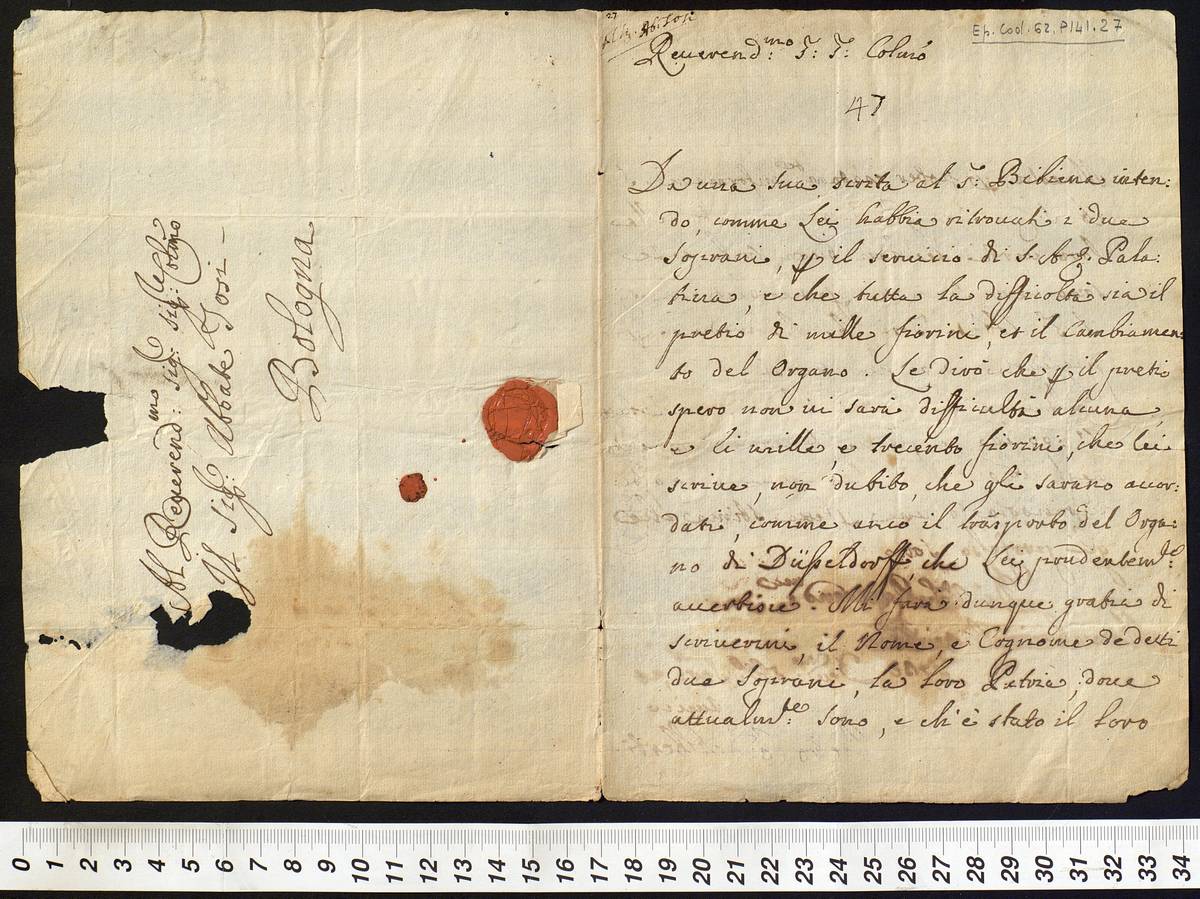 Al Reverend:mo Sig: Sig: Colmo
Il Sig: Abbate Tosi -
Bologna
27
All' Ab. Tosi
Ep. Cod. 62, P/141.27
Reverend:mo S: S: Colmo
47
Da una sua scrita al S: Bibiena inten:
do, comme Lei habbia ritrovati i due
Soprani, p il servicio di S. A. E. Pala:
tina, e che tutta la difficoltà sia il
pretio di mille fiorini, et il Cambiamen:
to del Organo. Le dirò che p il pretio
spero non vi sarà difficultà alcuna,
e li mille, e trecento fiorini, che lei
scrive, non dubito, che gli sarano accor:
dati, comme anco il trasporto del Orga:
no di Düsseldorff, che Lei prudentem:te
avertisce. Mi farà dunque gratia di
scrivermi, il Nome, e Cognome de detti
due Soprani, la loro Patria, dove
attualm:te sono, e chi è stato il loro
0 1 2 3 4 5 6 7 8 9 10 11 12 13 14 15 16 17 18 19 20 21 22 23 24 25 26 27 28 29 30 31 32 33 34